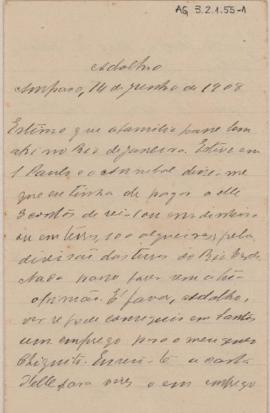 AG 3.2.1.55-1
Adolpho
Amparo, 14 de Junho de 1908
Estimo que a familia passe bem
ahi no Rio de Janeiro. Estive em
S. Paulo e o disse-
me que eu tinha de pagar a elle
3 contos de reis ou em dinheiro
ou em terras, 100 alqueires, pela
divisão das terras do Rio
Nada posso fazer sem a tua
opinião. É favor, Adolpho,
ver se pode conseguir em Santos
um emprego para o meu genro
Chiquito. Envio-te a carta
d'elle para veres o emprego